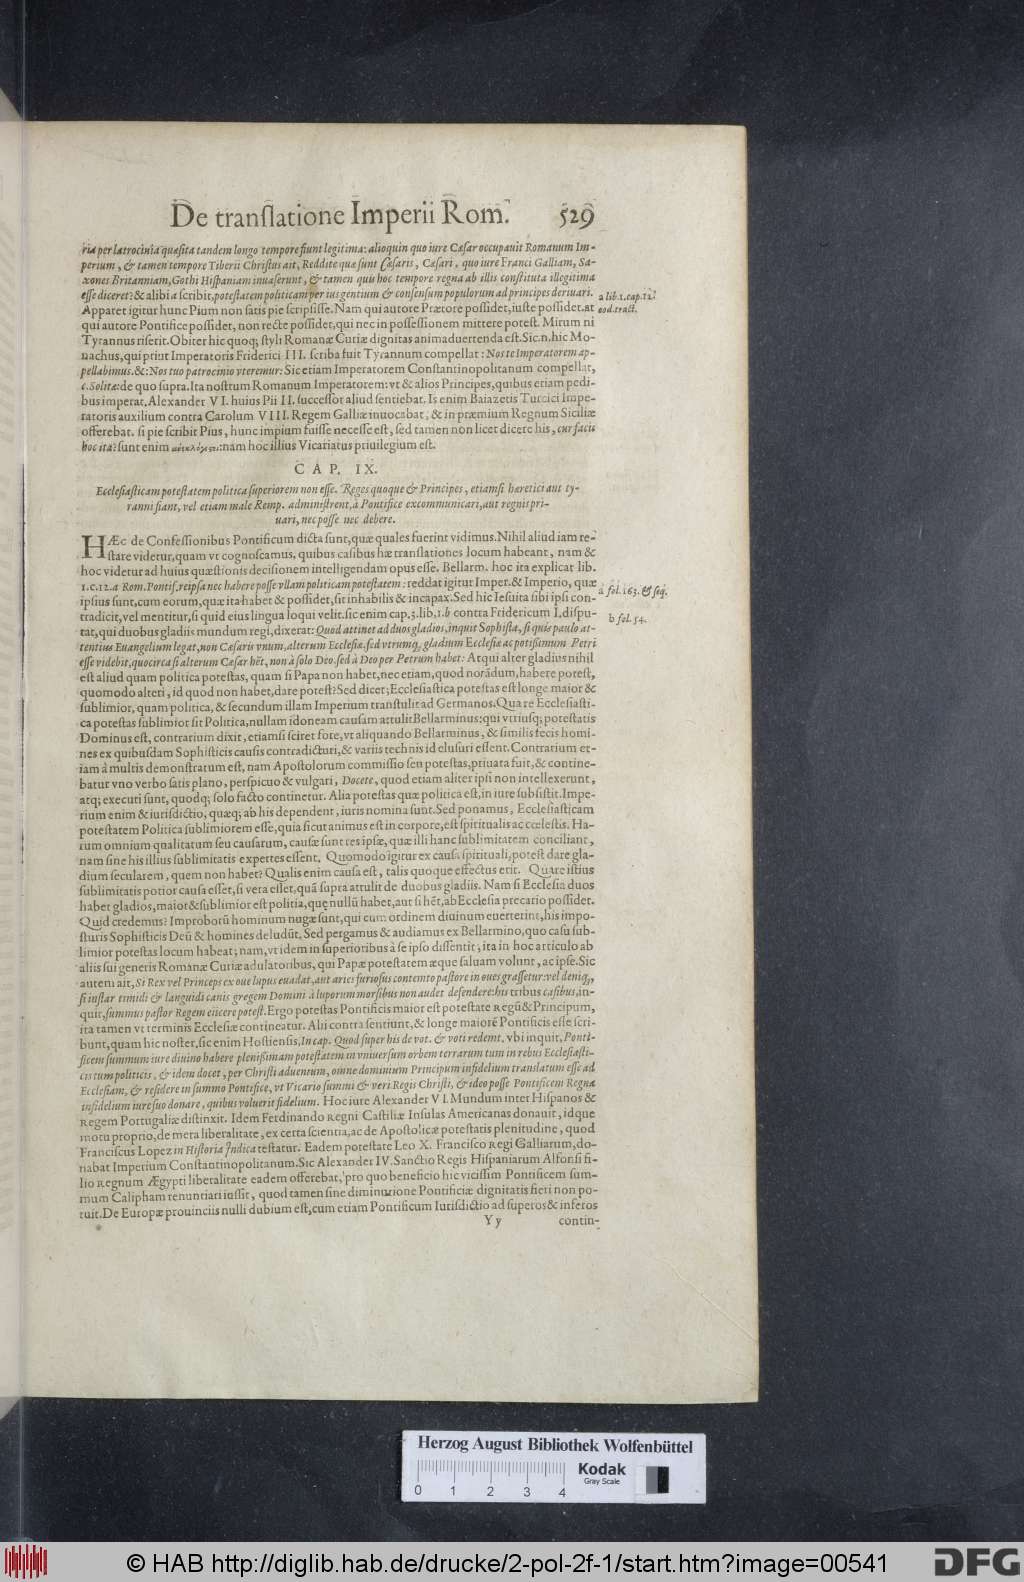 De translatione Imperii Rom. 529
ria per latrocinia quæsita tandem longo tempore fiunt legitima: alioquin quo iure Cæsar occupauit Romanum Im-
perium, & tamen tempore Tiberii Christus ait, Reddite quæ sunt Cæsaris, Cæsari, quo iure Franci Galliam, Sa-
xones Britanniam, Gothi Hispaniam inuaserunt, & tamen quis hoc tempore regna ab illis constituta illegitima
esse diceret? & alibi a scribit, potestatem politicam per ius gentium & consensum populorum ad principes deriuari. a lib. 1. cap. 12.
Apparet igitur hunc Pium non satis pie scripsisse. Nam qui autore Prætore possidet, iuste possidet. at eod. tract.
qui autore Pontifice possidet, non recte possidet, qui nec in possessionem mittere potest. Mirum ni
Tyrannus riserit. Obiter hic quoq; styli Romanæ Curiæ dignitas animaduertenda est. Sic. n. hic Mo-
nachus, qui prius Imperatoris Friderici III. scriba fuit Tyrannum compellat: Nos te Imperatorem ap-
pellabimus. &: Nos tuo patrocinio vteremur: Sic etiam Imperatorem Constantinopolitanum compellat,
c. Solitæ: de quo supra. Ita nostrum Romanum Imperatorem: vt & alios Principes, quibus etiam pedi-
bus imperat. Alexander VI. huius Pii II. successor aliud sentiebat. Is enim Baiazetis Turcici Impe-
ratoris auxilium contra Carolum VIII. Regem Galliæ inuocabat, & in præmium Regnum Siciliæ
offerebat. si pie scribit Pius, hunc impium fuisse necesse est, sed tamen non licet dicere his, cur facis
hoc ita? sunt enim : nam hoc illius Vicariatus priuilegium est.
CAP. IX.
Ecclesiasticam potestatem politica superiorem non esse. Reges quoque & Principes, etiamsi hæretici aut ty-
ranni fiant, vel etiam male Remp. administrent, à Pontifice excommunicari, aut regnis pri-
uari, nec posse nec debere.
HÆc de Confessionibus Pontificum dicta sunt, quæ quales fuerint vidimus. Nihil aliud iam re-
stare videtur, quam vt cognoscamus, quibus casibus hæ translationes locum habeant, nam &
hoc videtur ad huius quæstionis decisionem intelligendam opus esse. Bellarm. hoc ita explicat lib.
1. c. 12. a Rom. Pontif. reipsa nec habere posse vllam politicam potestatem: reddat igitur Imper. & Imperio, quæ a fol. 163. & seq.
ipsius sunt, cum eorum, quæ ita habet & possidet, sit inhabilis & incapax. Sed hic Iesuita sibi ipsi con-
tradicit, vel mentitur, si quid eius lingua loqui velit. sic enim cap. 3. lib. 1. b contra Fridericum I. dispu- b fol. 54.
tat, qui duobus gladiis mundum regi, dixerat: Quod attinet ad duos gladios, inquit Sophista, si quis paulo at-
tentius Euangelium legat, non Cæsaris vnum, alterum Ecclesiæ, sed vtrumq; gladium Ecclesiæ ac potißimum Petri
esse videbit, quocirca si alterum Cæsar hēt, non à solo Deo. sed à Deo per Petrum habet: Atqui alter gladius nihil
est aliud quam politica potestas, quam si Papa non habet, nec etiam, quod norādum, habere potest,
quomodo alteri, id quod non habet, dare potest? Sed dicet; Ecclesiastica potestas est longe maior &
sublimior, quam politica, & secundum illam Imperium transtulit ad Germanos. Quare Ecclesiasti-
ca potestas sublimior sit Politica, nullam idoneam causam attulit Bellarminus: qui vtriusq; potestatis
Dominus est, contrarium dixit, etiamsi sciret fore, vt aliquando Bellarminus, & similis fecis homi-
nes ex quibusdam Sophisticis causis contradicturi, & variis technis id elusuri essent. Contrarium et-
iam à multis demonstratum est, nam Apostolorum commissio seu potestas, priuata fuit, & contine-
batur vno verbo satis plano, perspicuo & vulgari, Docete, quod etiam aliter ipsi non intellexerunt,
atq; executi sunt, quodq; solo facto continetur. Alia potestas quæ politica est, in iure subsistit. Impe-
rium enim & iurisdictio, quæq; ab his dependent, iuris nomina sunt. Sed ponamus, Ecclesiasticam
potestatem Politica sublimiorem esse, quia sicut animus est in corpore, est spiritualis ac cœlestis. Ha-
rum omnium qualitatum seu causarum, causæ sunt res ipsæ, quæ illi hanc sublimitatem conciliant,
nam sine his illius sublimitatis expertes essent. Quomodo igitur ex causa spirituali, potest dare gla-
dium secularem, quem non habet? Qualis enim causa est, talis quoque effectus erit. Quare istius
sublimitatis potior causa esset, si vera esset, quā supra attulit de duobus gladiis. Nam si Ecclesia duos
habet gladios, maior & sublimior est politia, que nullū habet, aut si hēt, ab Ecclesia precario possidet.
Quid credemus? Improborū hominum nugæ sunt, qui cum ordinem diuinum euerterint, his impo-
sturis Sophisticis Deū & homines deludūt. Sed pergamus & audiamus ex Bellarmino, quo casu sub-
limior potestas locum habeat; nam, vt idem in superioribus à se ipso dissentit; ita in hoc articulo ab
aliis sui generis Romanæ Curiæ adulatoribus, qui Papæ potestatem æque saluam volunt, ac ipse. Sic
autem ait, Si Rex vel Princeps ex oue lupus euadat, aut aries furiosus contemto pastore in oues grassetur: vel deniq;,
si instar timidi & languidi canis gregem Domini à luporum morsibus non audet defendere: his tribus casibus, in-
quit, summus pastor Regem eiicere potest. Ergo potestas Pontificis maior est potestate Regū & Principum,
ita tamen vt terminis Ecclesiæ contineatur. Alii contra sentiunt, & longe maiorē Pontificis esse scri-
bunt, quam hic noster, sic enim Hostiensis, In cap. Quod super his de vot. & voti redemt. vbi inquit, Ponti-
ficem summum iure diuino habere plenißimam potestatem in vniuersum orbem terrarum tum in rebus Ecclesiasti-
cis tum politicis, & idem docet, per Christi aduentum, omne dominium Principum infidelium translatum esse ad
Ecclesiam, & residere in summo Pontifice, vt Vicario summi & veri Regis Christi, & ideo posse Pontificem Regna
infidelium iure suo donare, quibus voluerit fidelium. Hoc iure Alexander VI. Mundum inter Hispanos &
Regem Portugaliæ distinxit. Idem Ferdinando Regni Castiliæ Insulas Americanas donauit, idque
motu proprio, de mera liberalitate, ex certa scientia, ac de Apostolicæ potestatis plenitudine, quod
Franciscus Lopez in Historia Indica testatur. Eadem potestate Leo X. Francisco Regi Galliarum, do-
nabat Imperium Constantinopolitanum. Sic Alexander IV. Sanctio Regis Hispaniarum Alfonsi fi-
lio Regnum Ægypti liberalitate eadem offerebat, pro quo beneficio hic vicissim Pontificem sum-
mum Calipham renuntiari iussit, quod tamen sine diminutione Pontificiæ dignitatis fieri non po-
tuit. De Europæ prouinciis nulli dubium est, cum etiam Pontificum Iurisdictio ad superos & inferos
Yy contin-
Herzog August Bibliothek Wolfenbüttel
Kodak
Gray Scale
0 1 2 3 4
© HAB http://diglib.hab.de/drucke/2-pol-2f-1/start.htm?image=00541
DFG